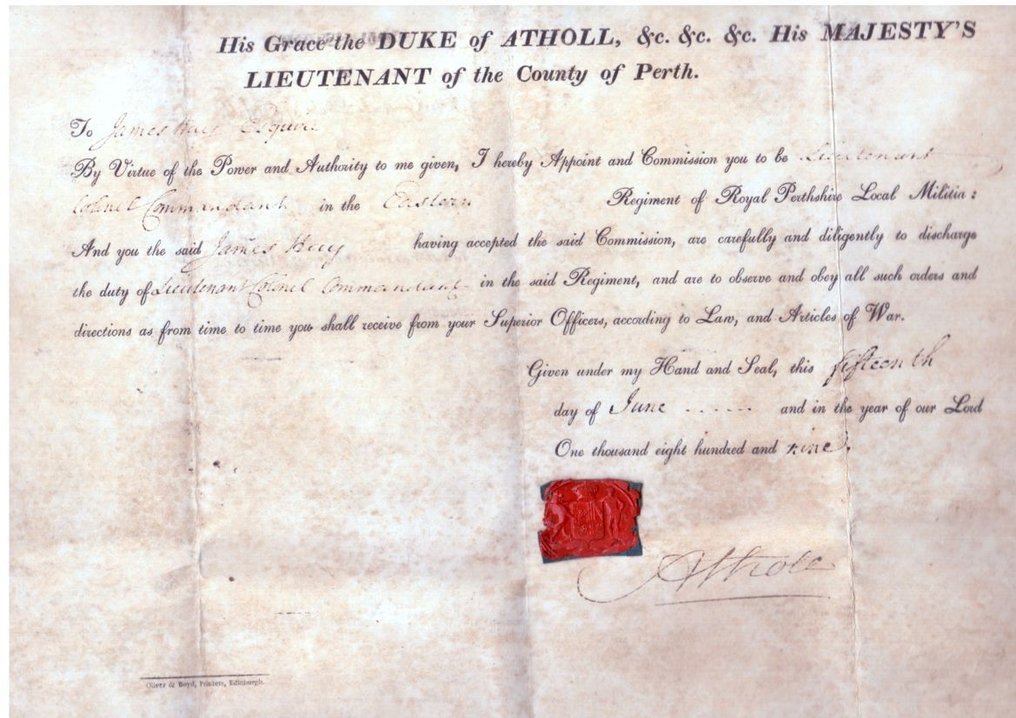 His Grace the DUKE of ATHOLL, &c. &c. &c. His MAJESTY'S
LIEUTENANT of the County of Perth.
To James Hay Esquire
By Virtue of the Power and Authority to me given, I hereby Appoint and Commission you to be Lieutenant
Colonel Commandant in the Eastern Regiment of Royal Perthshire Local Militia:
And you the said James Hay having accepted the said Commission, are carefully and diligently to discharge
the duty of Lieutenant Colonel Commandant in the said Regiment, and are to observe and obey all such orders and
directions as from time to time you shall receive from your Superior Officers, according to Law, and Articles of War.
Given under my Hand and Seal, this fifteenth
day of June ...... and in the year of our Lord
One thousand eight hundred and nine.
Atholl
Oliver & Boyd, Printers, Edinburgh.